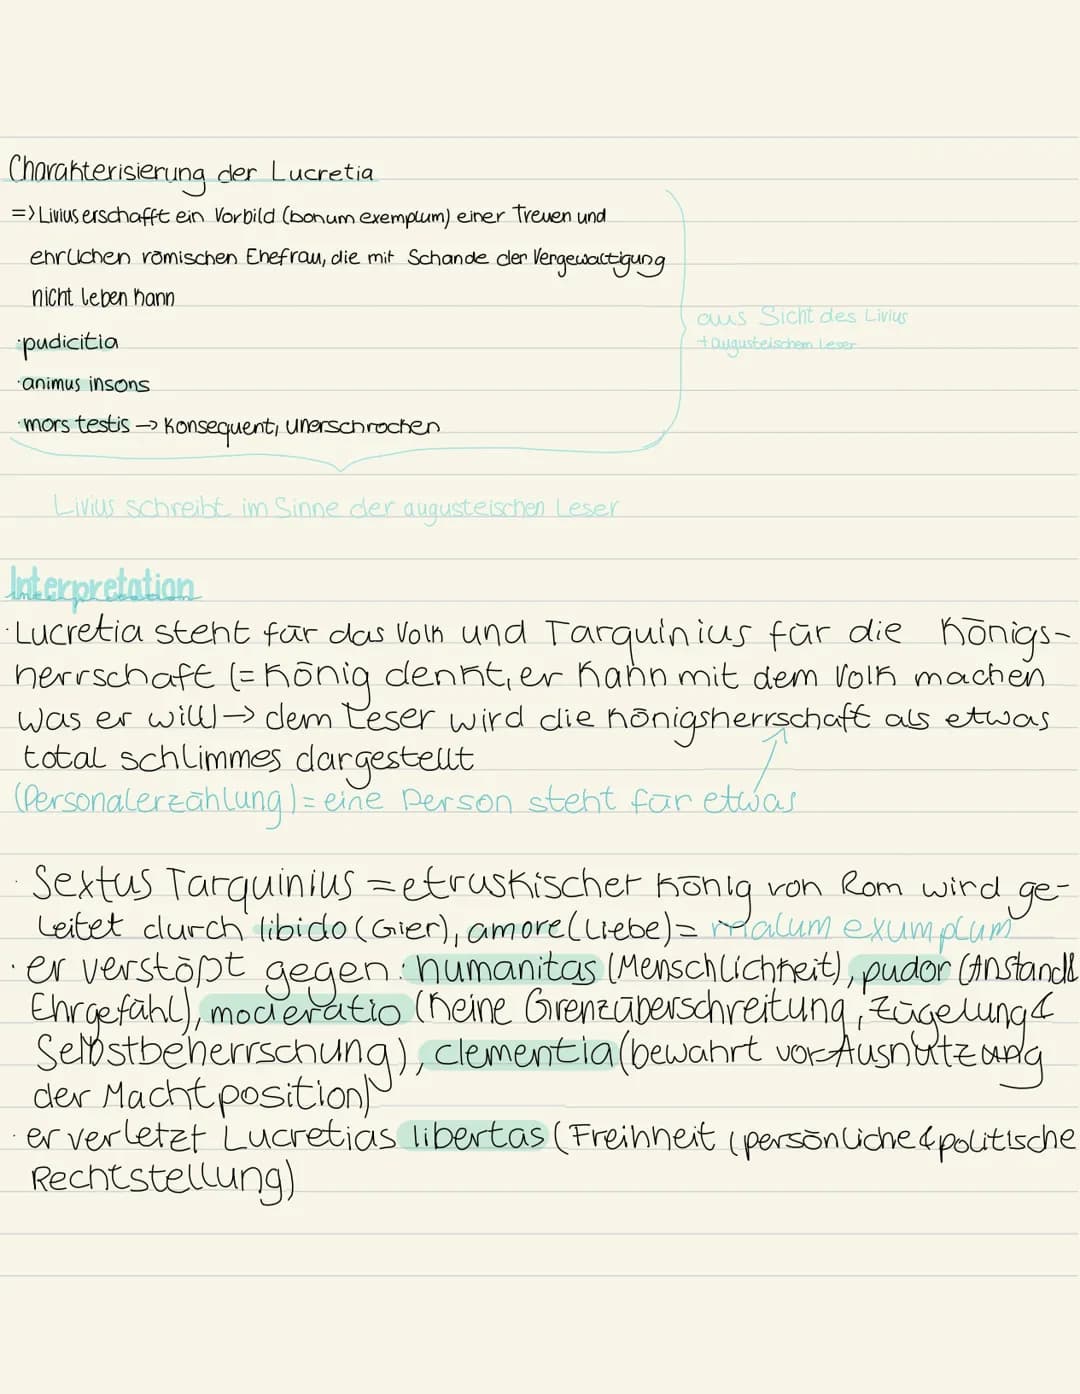 Charakterisierung der Lucretia
=> Livius erschafft ein Vorbild (bonum exemplum) einer Treuen und
ehrlichen römischen Ehefrau, die mit Schande der Vergewaltigung
nicht leben kann
·pudicitia
·animus insons
·mors testis -> Konsequent, unerschrocken
aus Sicht des Livius
+ augusteischem Leser
Livius schreibt im Sinne der augusteischen Leser
Interpretation
·Lucretia steht für das Volk und Tarquinius für die Königs-
herrschaft (= König denkt, er kann mit dem Volk machen
was er will -> dem Leser wird die Königsherrschaft als etwas
total schlimmes dargestellt
(Personalerzählung) = eine Person steht für etwas
· Sextus Tarquinius = etruskischer König von Rom wird ge-
leitet durch libido (Gier), amore (Liebe) = malum exumplum
· er verstößt gegen: humanitas (Menschlichkeit), pudor (Anstand &
Ehrgefühl), moderatio (keine Grenzüberschreitung, Zügelung &
Selbstbeherrschung), clementia (bewahrt vor Ausnutzung
der Machtposition)
· er verletzt Lucretias libertas (Freihheit (persönliche & politische
Rechtstellung)